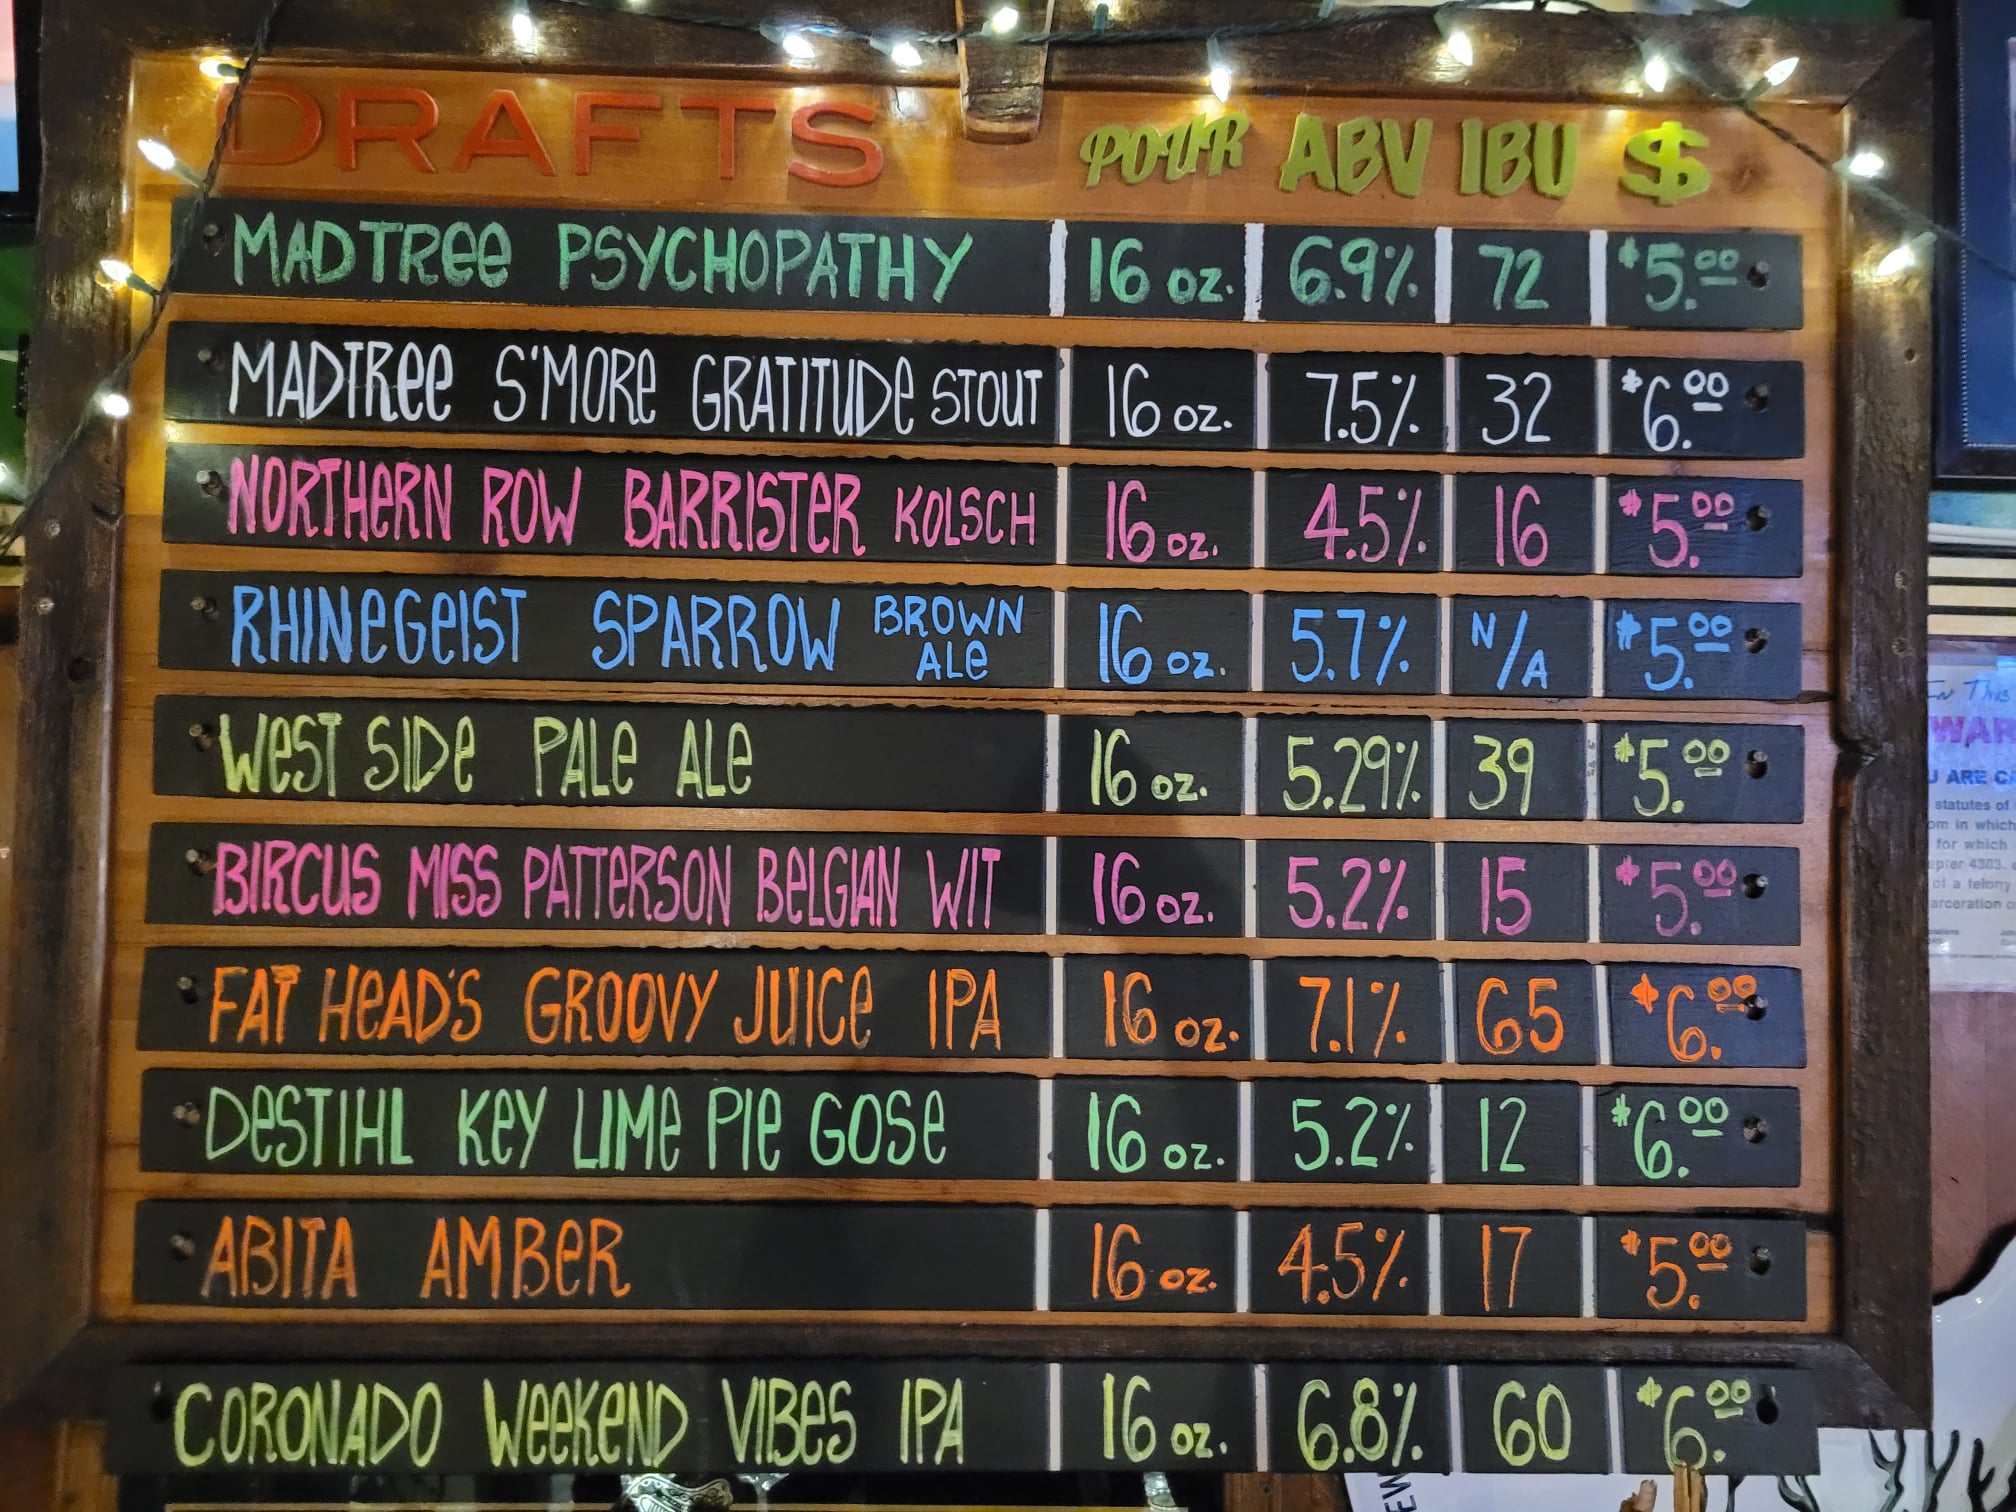 DRAFTS POUR ABV IBU $
MADTREE PSYCHOPATHY 16 OZ. 6.9% 72 $5.00
MADTREE S'MORE GRATITUDE STOUT 16 OZ. 7.5% 32 $6.00
NORTHERN ROW BARRISTER KOLSCH 16 OZ. 4.5% 16 $5.00
RHINEGEIST SPARROW BROWN ALE 16 OZ. 5.7% N/A $5.00
WEST SIDE PALE ALE 16 OZ. 5.29% 39 $5.00
BIRCUS MISS PATTERSON BELGIAN WIT 16 OZ. 5.2% 15 $5.00
FAT HEAD'S GROOVY JUICE IPA 16 OZ. 7.1% 65 $6.00
DESTIHL KEY LIME PIE GOSE 16 OZ. 5.2% 12 $6.00
ABITA AMBER 16 OZ. 4.5% 17 $5.00
CORONADO WEEKEND VIBES IPA 16 OZ. 6.8% 60 $6.00
In This
WAR
U ARE
statutes of
om in which
for which
apter 4303.
of a felony
arceration
EW